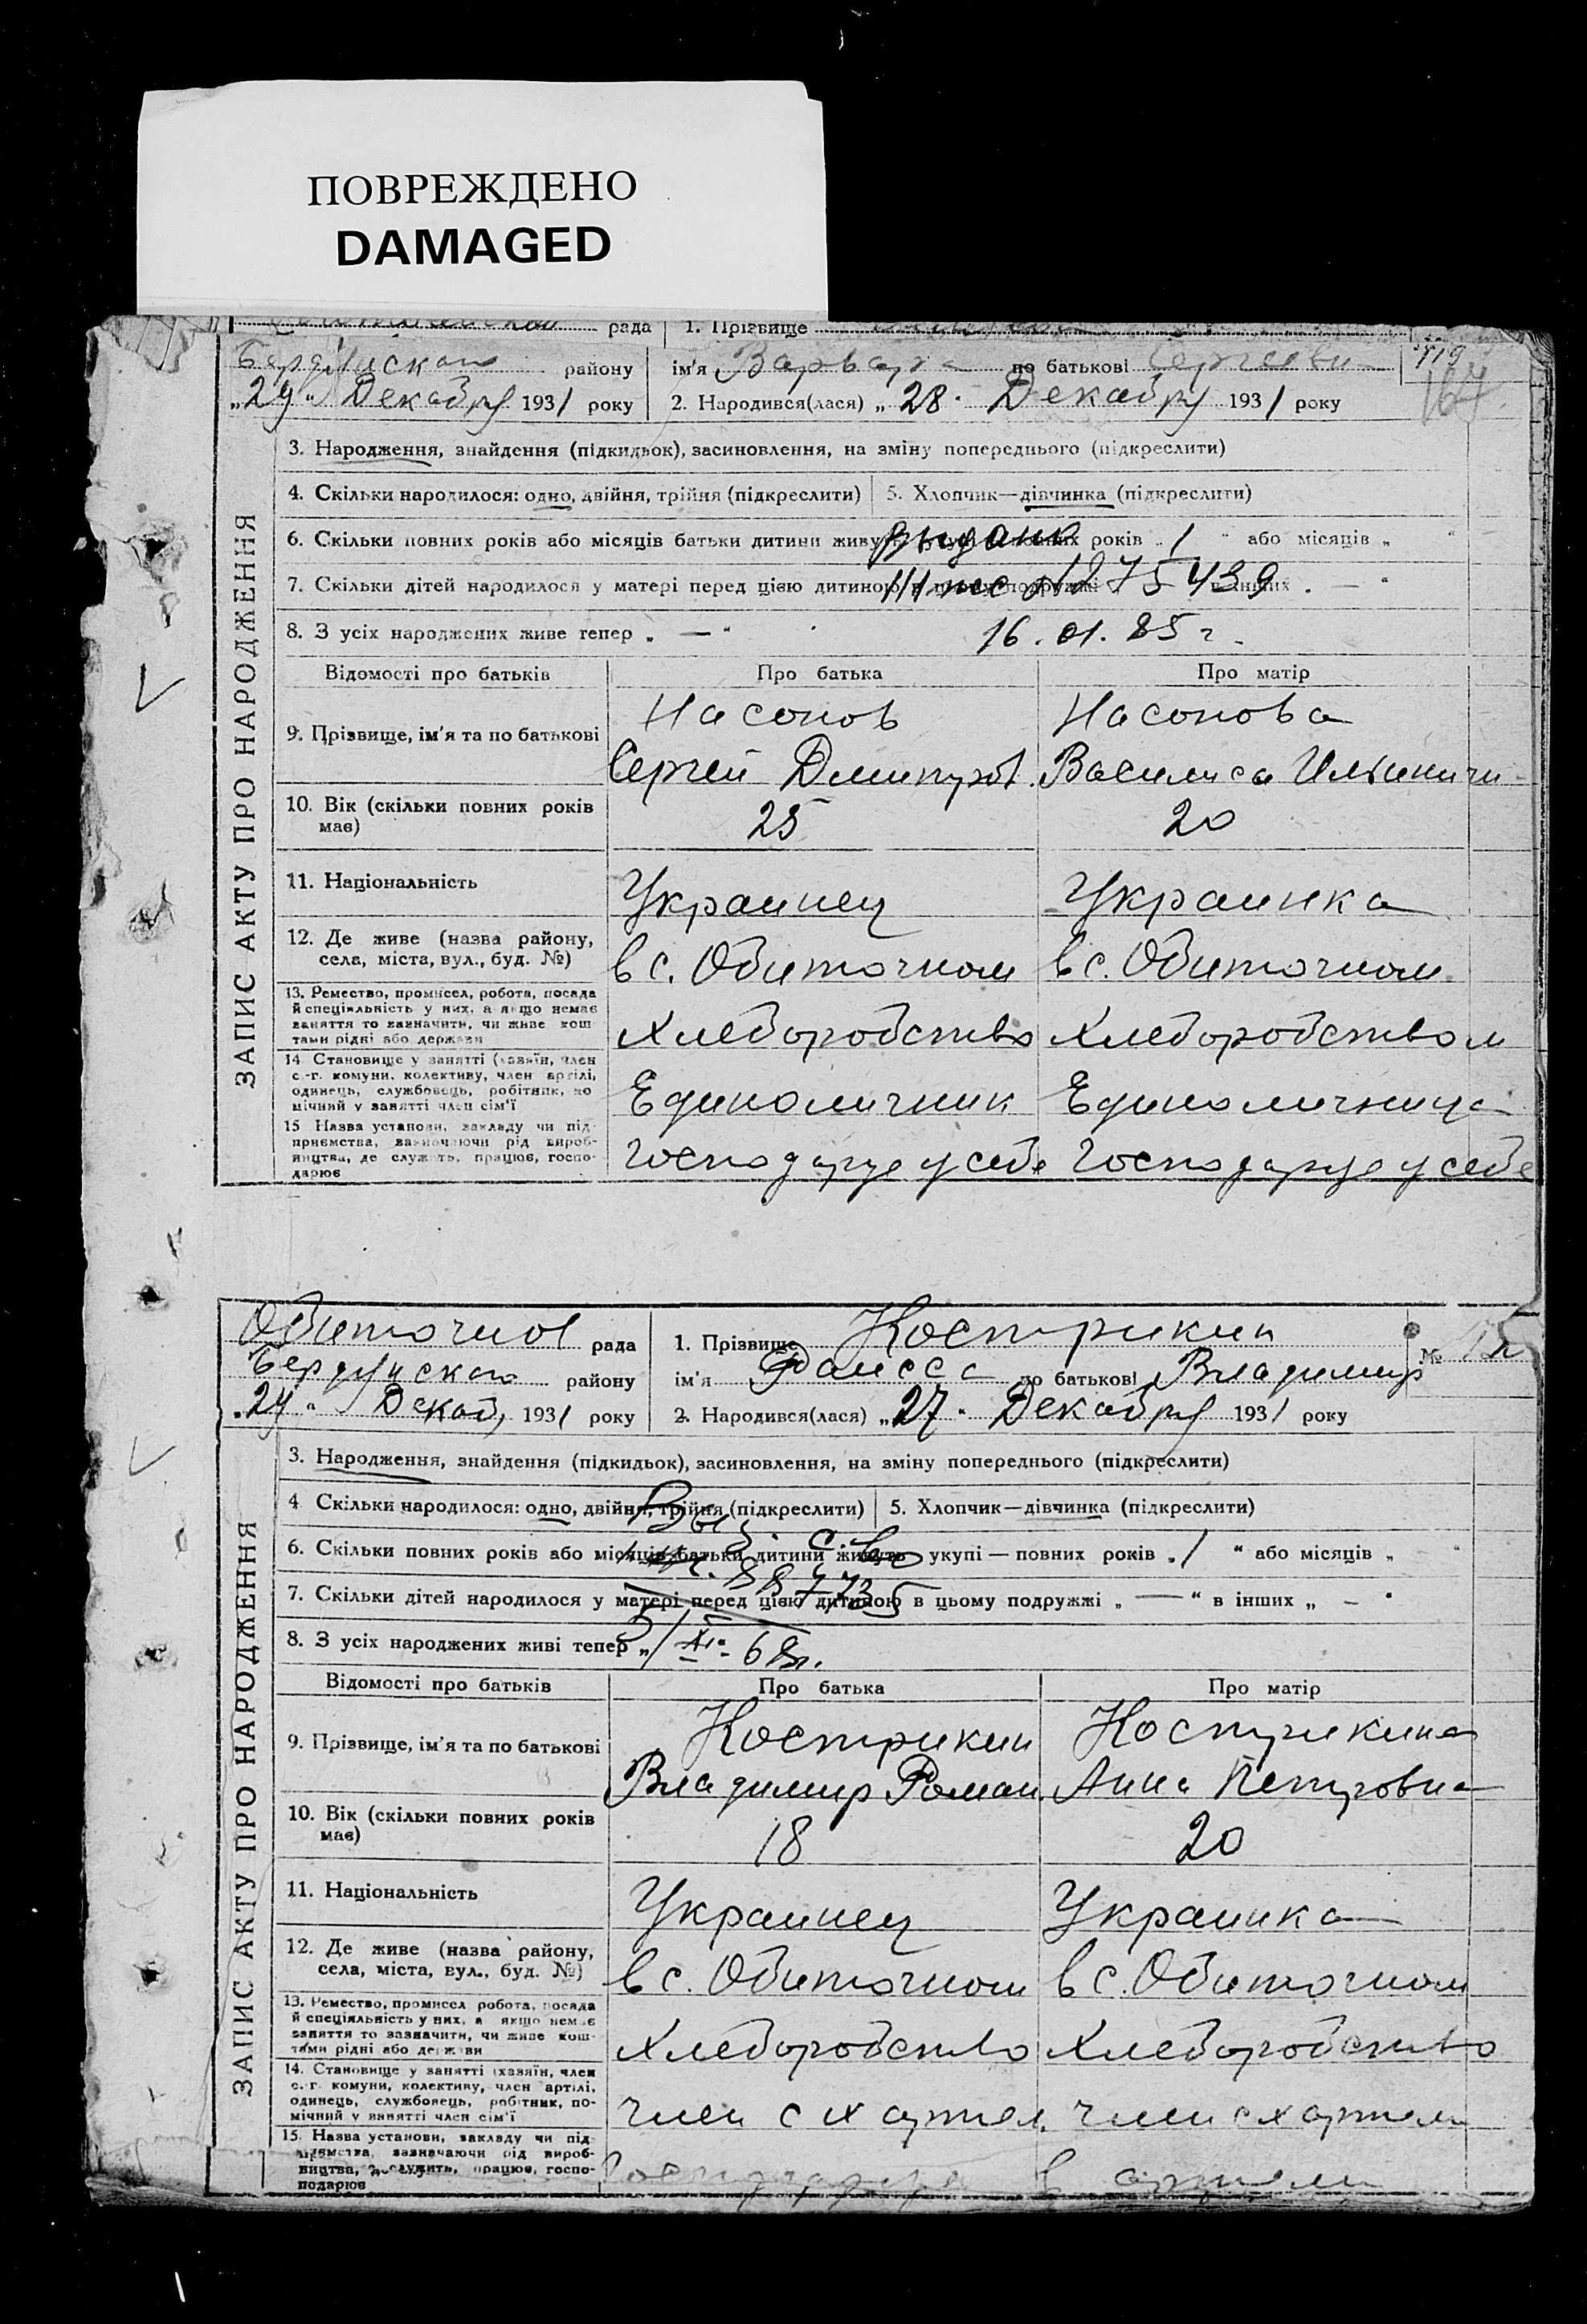 ПОВРЕЖДЕНО
DAMAGED
рада 1. Прізвище
Бердянского району ім'я Варвара по батькові Сергеевн
„29“ Декабря 1931 року 2. Народився(лася) „28“ Декабря 1931 року
ЗАПИС АКТУ ПРО НАРОДЖЕННЯ
3. Народження, знайдення (підкидьок), засиновлення, на зміну попереднього (підкреслити)
4. Скільки народилося: одно, двійня, трійня (підкреслити) 5. Хлопчик—дівчинка (підкреслити)
6. Скільки повних років або місяців батьки дитини живуть років „1“ або місяців „ “
выдано
7. Скільки дітей народилося у матері перед цією дитиною в цьому подружжі в інших — “
№ 275439
8. З усіх народжених живе тепер „ — “
16.01.85 г.
Відомості про батьків Про батька Про матір
9. Прізвище, ім'я та по батькові Насонов Насонова
Сергей Дмитров. Василиса Ильинични
10. Вік (скільки повних років має) 25 20
11. Національність Украинец Украинка
12. Де живе (назва району, села, міста, вул., буд. №) в с. Обиточном в с. Обиточном
13. Ремество, промисел, робота, посада й спеціяльність у них, а якщо немає заняття то зазначити, чи живе кош тами рідні або держави Хлебороbство Хлеборобством
14. Становище у занятті (хазяїн, член с.-г. комуни, колективу, член артілі, одинець, службовець, робітник, по мічний у занятті член сім'ї Единоличник Единоличница
15 Назва установи, закладу чи під приємства, зазначаючи рід вироб- ництва, де служить, працює, госпо- дарює господарує у себе господарує у себе
Обиточної рада 1. Прізвище Кострикин №
Бердянского району ім'я Раисса по батькові Владимир
„29“ Декаб, 1931 року 2. Народився(лася) „27“ Декабря 1931 року
ЗАПИС АКТУ ПРО НАРОДЖЕННЯ
3. Народження, знайдення (підкидьок), засиновлення, на зміну попереднього (підкреслити)
4 Скільки народилося: одно, двійня, трійня (підкреслити) 5. Хлопчик—дівчинка (підкреслити)
6. Скільки повних років або місяців батьки дитини живуть укупі — повних років „1“ або місяців „ “
7. Скільки дітей народилося у матері перед цією дитиною в цьому подружжі „ — “ в інших „ — “
8. З усіх народжених живі тепер „
Відомості про батьків Про батька Про матір
9. Прізвище, ім'я та по батькові Кострикин Кострикина
Владимир Роман. Анна Петровна
10. Вік (скільки повних років має) 18 20
11. Національність Украинец Украинка
12. Де живе (назва району, села, міста, вул., буд. №) в с. Обиточном в с. Обиточном
13. Ремество, промисел робота, посада й спеціяльність у них, а якщо немає заняття то зазначити, чи живе кош- тами рідні або держави Хлеборобство Хлеборобство
14. Становище у занятті (хазяїн, член с.-г. комуни, колективу, член артілі, одинець, службовець, робітник, по- мічний у занятті член сім'ї член с х артел. член с х артели
15. Назва установи, закладу чи під приємства, зазначаючи рід вироб- ництва, де служить, працює, госпо- подарює в артели